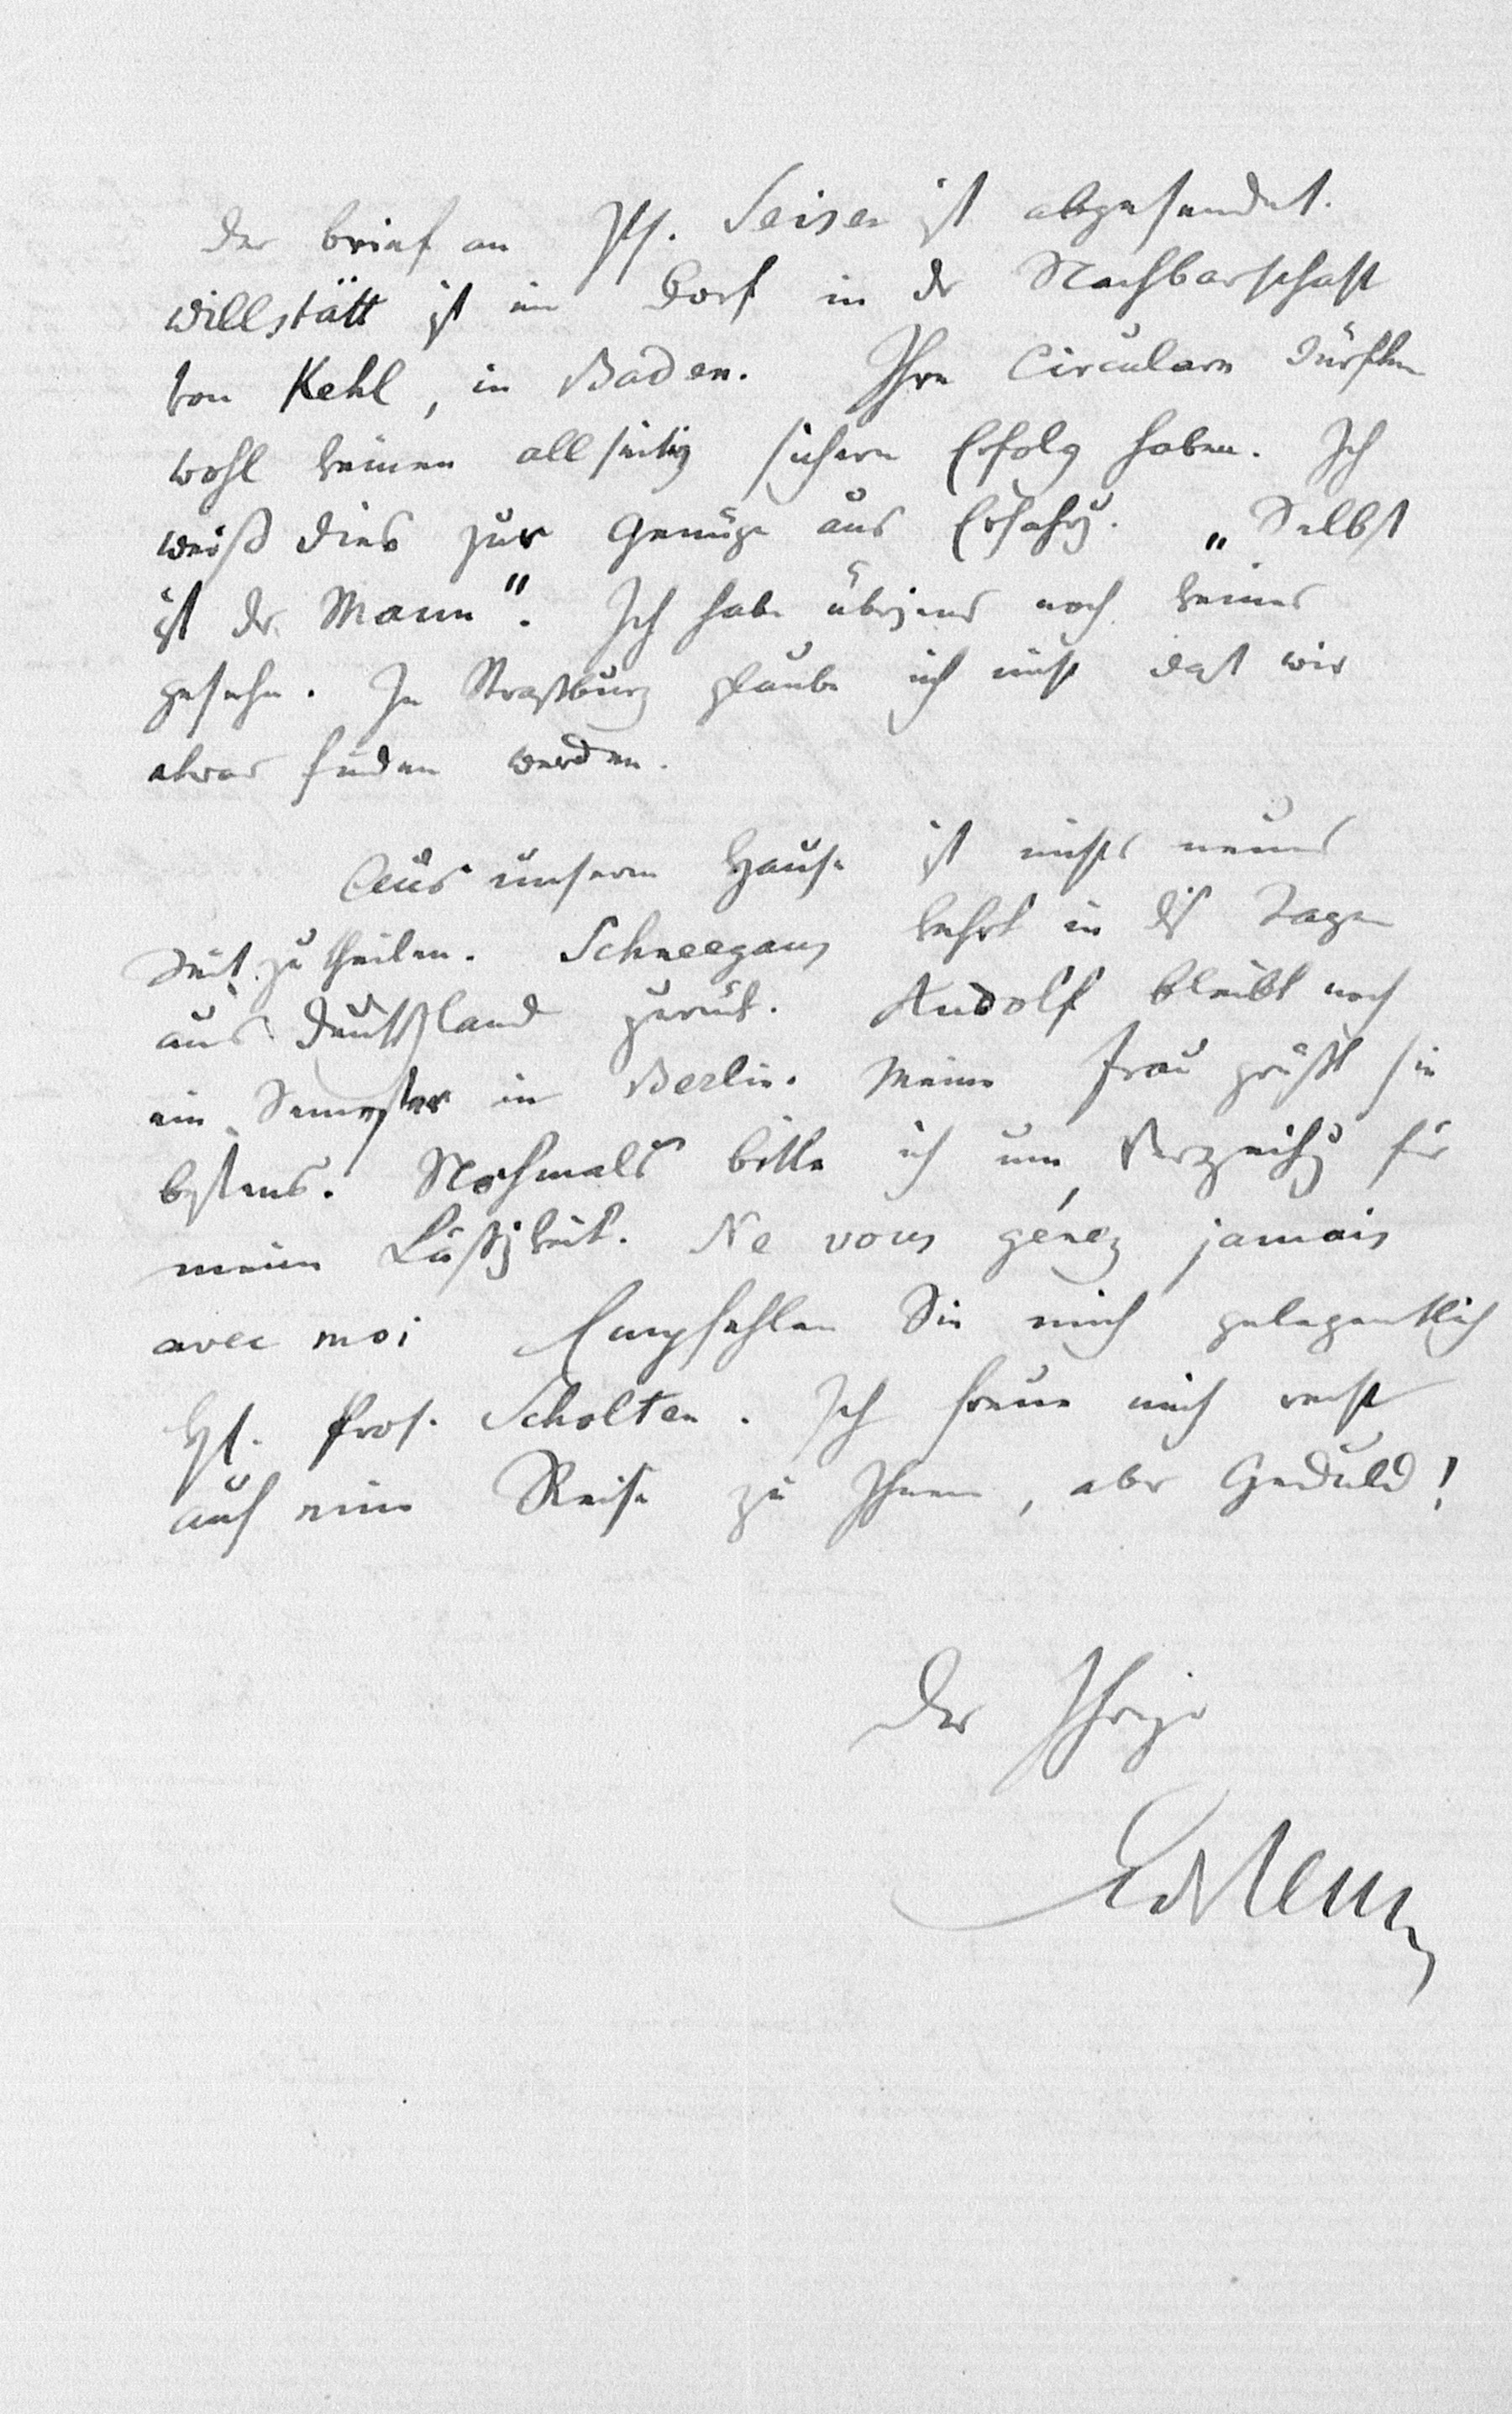 Der Brief an Pf. Seisen ist abgesendet.
Willstätt ist ein Dorf in der Nachbarschaft
von Kehl, in Baden. Ihre Circulare dürften
wohl keinen allseitig sichern Erfolg haben. Ich
weiß dies zur Genüge aus Erfahrg. „Selbst
ist der Mann". Ich habe übrigens noch keines
gesehn. In Straßburg glaube ich nicht daß wir
etwas finden werden.
Aus unserm Hause ist nichts neues
mitzutheilen. Schneegans kehrt in dies Tagen
aus Deutschland zurük. Rudolf bleibt noch
ein Semester in Berlin. Meine Frau grüßt sie
bestens. Nochmals bitte ich um Verzeihg für
meine Läßigkeit. Ne vous génez jamais
avec moi Empfehlen Sie mich gelegentlich
H. Prof. Scholten. Ich freue mich recht
auf eine Reise zu Ihnen, aber Geduld!
Der Ihrige
EdReuss